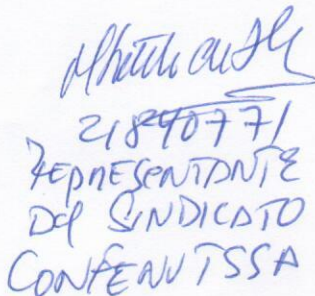 21840771
REPRESENTANTE
DEL SINDICATO
CONFENUTSSA